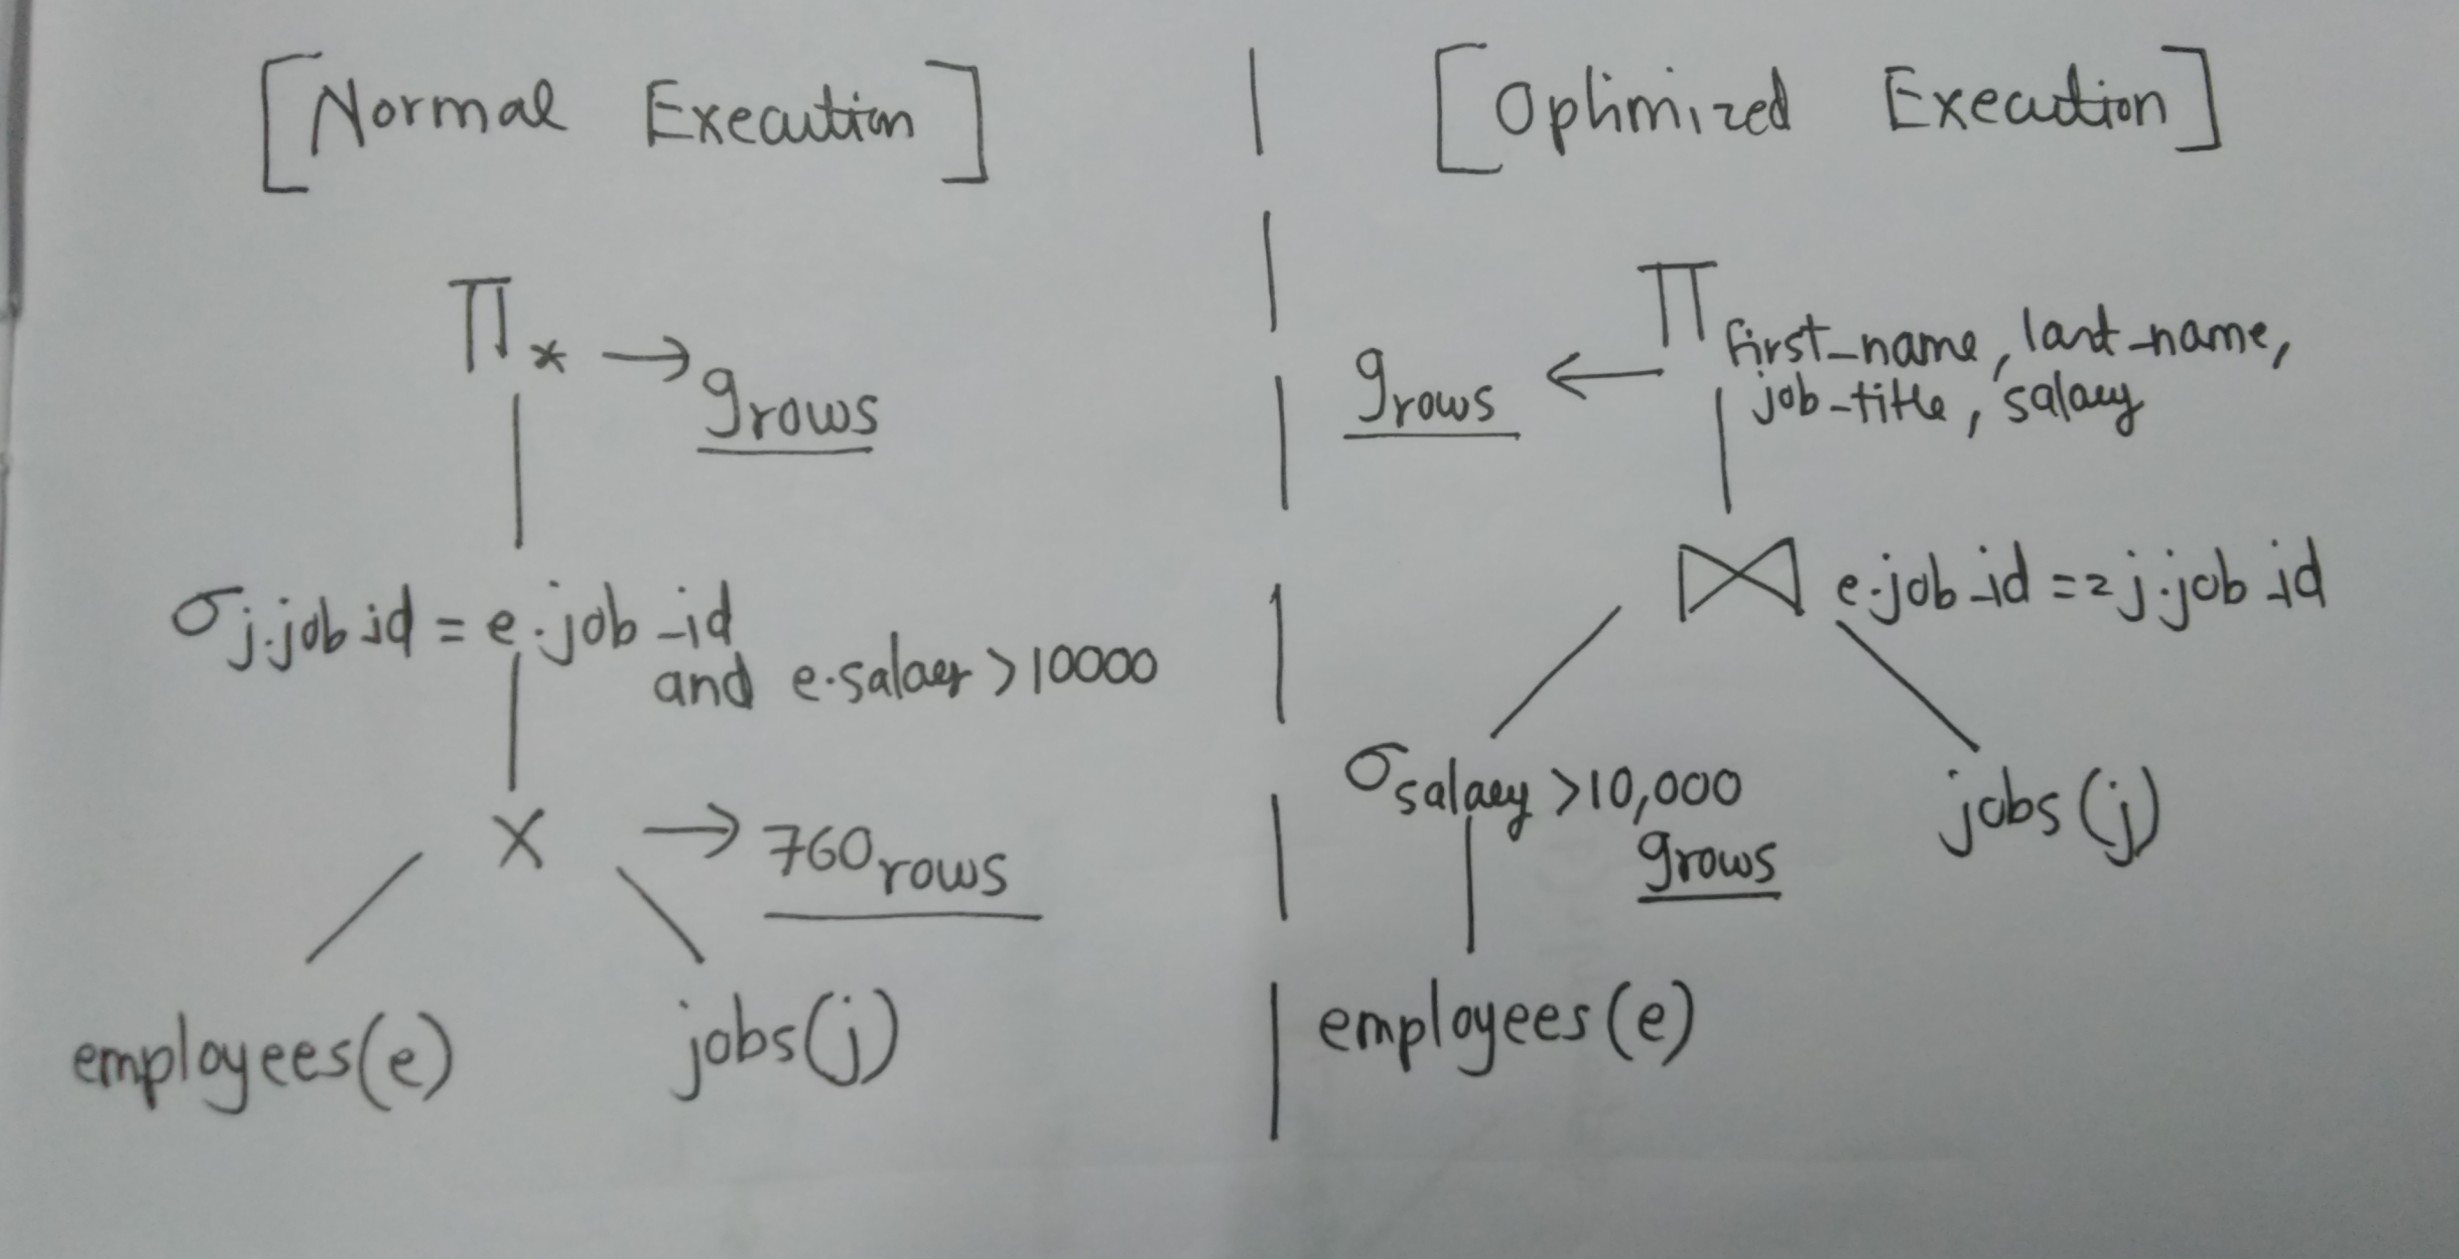 [Normal Execution]
π * → 9 rows
σ j.job_id = e.job_id
and e.salary > 10000
X → 760 rows
employees(e) jobs(j)
[Optimized Execution]
π first_name, last_name,
job_title, salary
9 rows ←
⋈ e.job_id == j.job_id
σ salary > 10,000
9 rows
jobs(j)
employees(e)